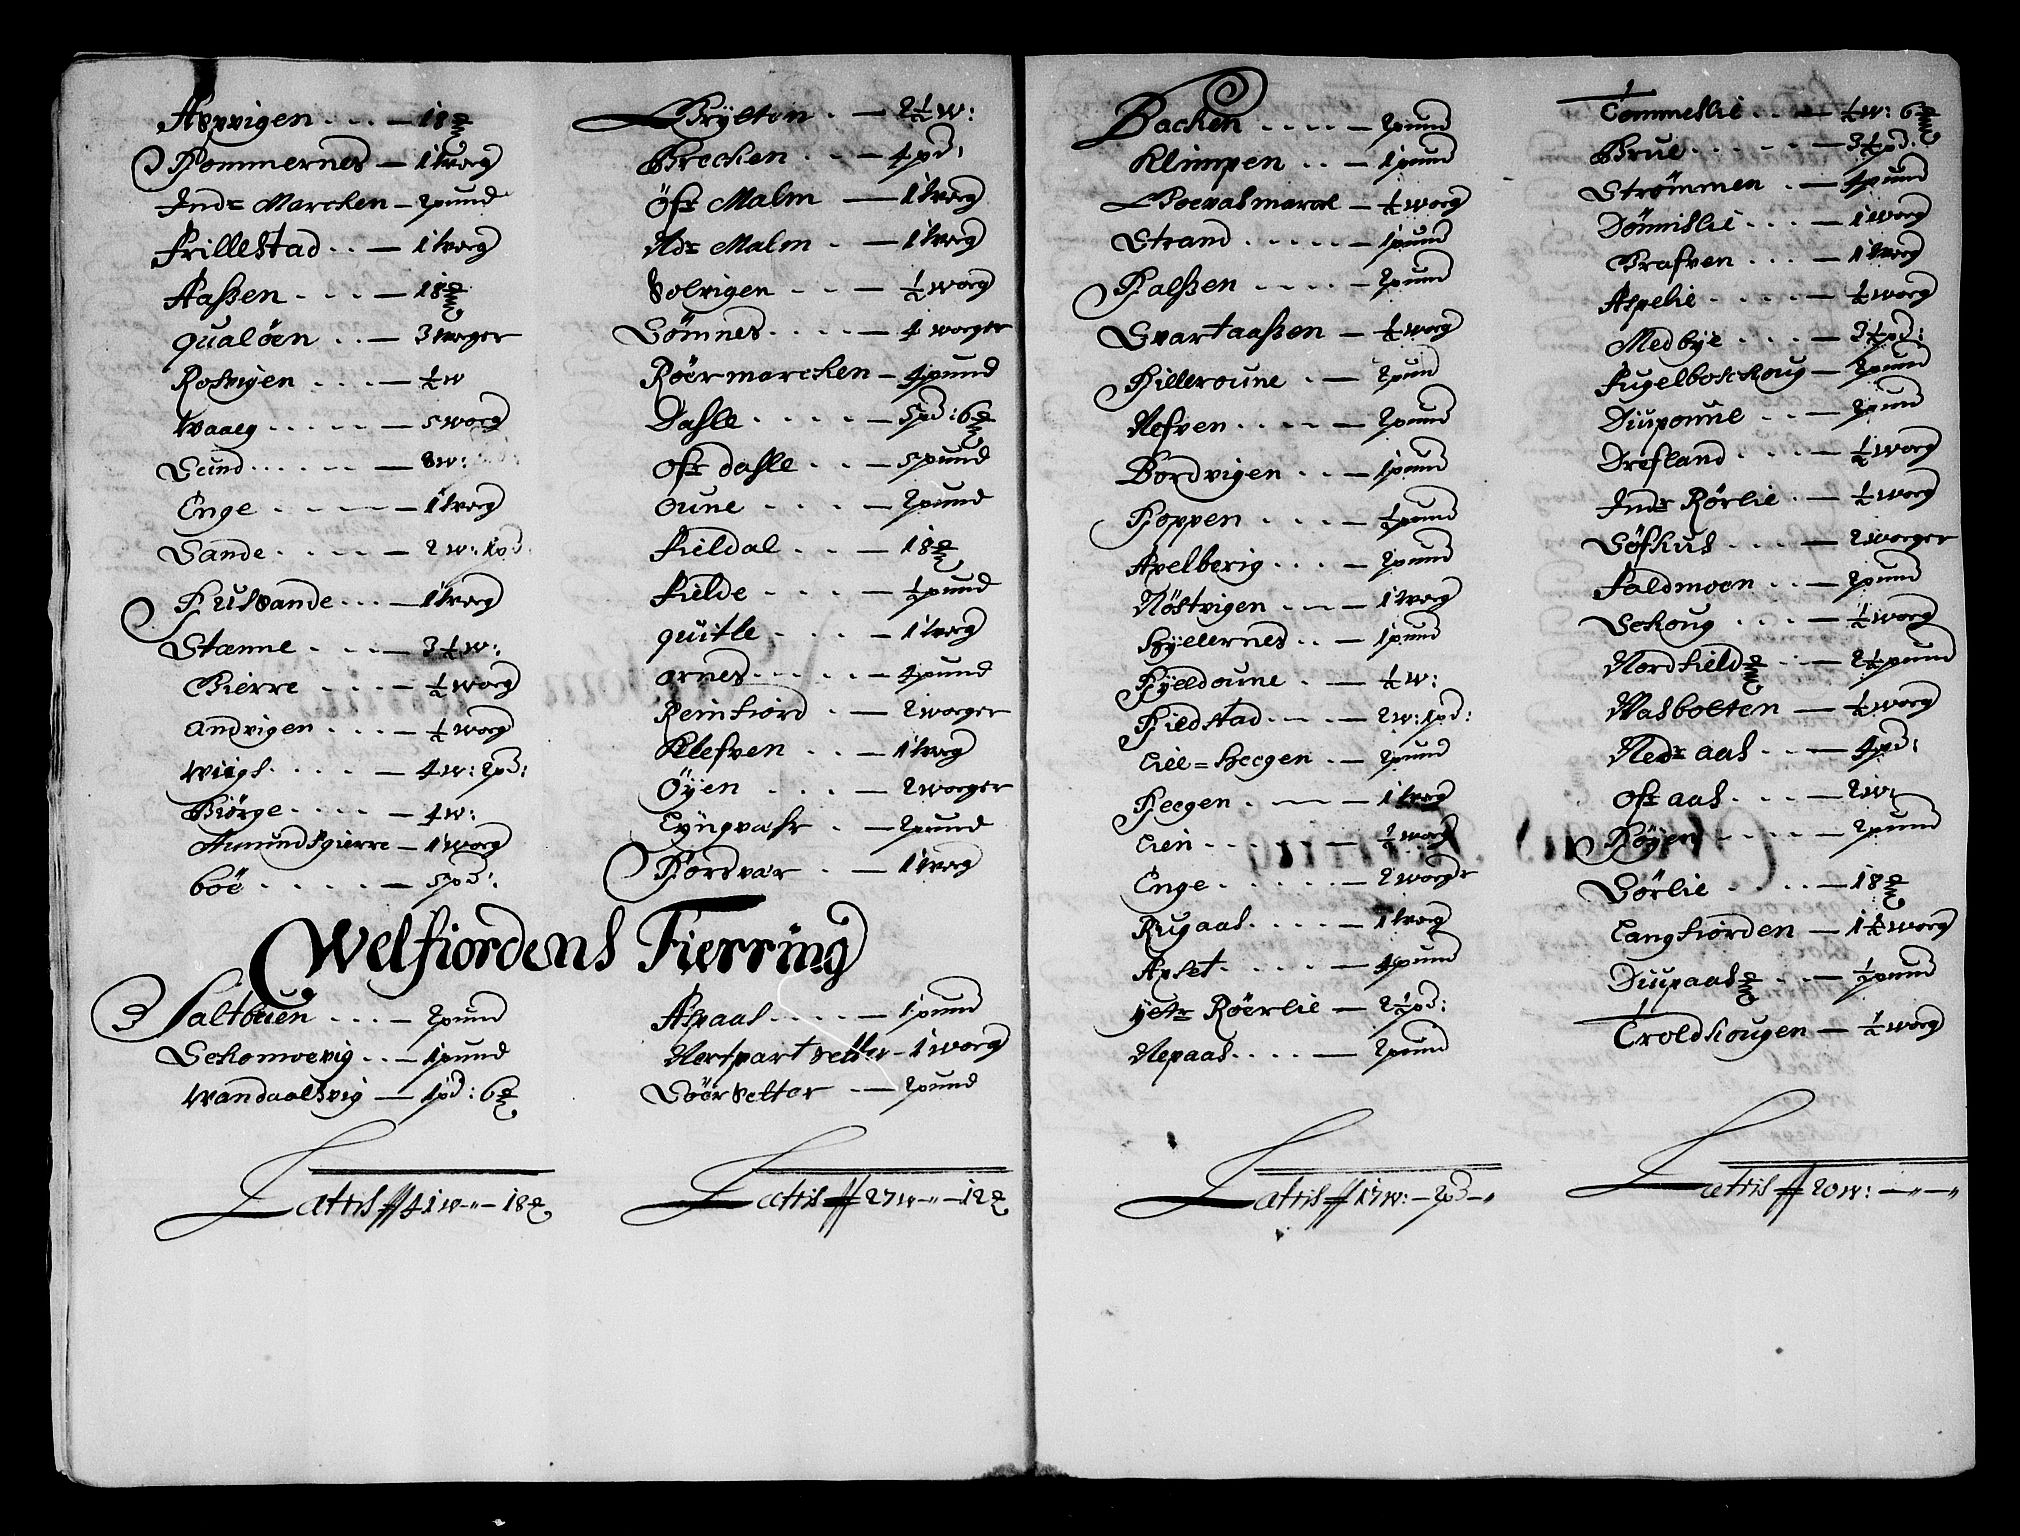 Aspvigen - - - - 18 ℔
Hommernes - 1 worg
Indr Marchen - 2 pund
Frillestad - - - 1 worg
Aaßen - - - - 18 ℔
qualöen - - - 3 worger
Rosvigen - - - - ½ w
Waaeg - - - - - 5 worg
Sund - - - - - 8 w:
Enge - - - - - 1 worg
Sande - - - - - 2 w: 1 pd:
Husvande - - - - 1 worg
Stenne - - - - 3 ½ w:
Bierre - - - - ½ worg
andvigen - - - - ½ worg
Wiigs - - - - - 4 w: 2 pd:
Biörge - - - - - 4 w:
Amundsgierre - 1 worg
böe - - - - - 5 pd:
Brÿlten - - 2 ½ w:
Brecken - - - 4 pd:
Öfr Malm - 1 worg
Ndr Malm - - 1 worg
Solvigen - - - ½ worg
Sömnes - - - - 4 worger
Röermarchen - 4 pund
Dahle - - - - - 5 pd: 6 ℔
Ofr dahle - - - 5 pund
Oune - - - - 2 pund
Fieldal - - - 18 ℔
Fielde - - - - ½ pund
quitle - - - - 1 worg
arnes - - - - - 4 pund
Reinfiord - - 2 worger
Klefven - - - 1 worg
Öÿen - - - - 2 worger
Lÿngvasr - - 2 pund
Horsvar - - 1 worg
Welfiordens Fierring
Saltbuen - - - - 2 pund
Schomoevig - - - 1 pund
Wandaalsvig - 1 pd: 6 ℔
Aspaas - - - - - 1 pund
Nerspart setter - 1 worg
Söersetter - - 2 pund
Latris ff 41 w -"- 18 ℔
Lattris ff 27 w -"- 12 ℔
Bachen - - - - - 2 pund
Klimpen - - - 1 pund
Boevasmarck - ½ worg
Strand - - - - - 1 pund
Halßen - - - - - 2 pund
Svartaaßen - ½ worg
Hilleroune - - 2 pund
Nefven - - - - - 2 pund
Bordvigen - - - 1 pund
Hoppen - - - - ½ pund
Avelberig - - - - 2 pund
Nöstvigen - - - 1 worg
Hÿelernes - - - 1 pund
Hÿeldoune - - ½ w:
Hieldstad - - - 2 w: 1 pd:
Lill=Heegen - - 2 pund
Heegen - - - 1 worg
Lien - - - - - ½ worg
Enge - - - - - 2 worger
Rugaas - - - - - 1 worg
Avset - - - - - 4 pund
ÿetr Röerlie - 2 ½ pd:
Nepaas - - - - - 2 pund
Tommeslie - - - ½ w: 6 ℔
Brue - - - - - - 3 ½ pd:
Strömmen - - 4 pund
Dönnislie - - - 1 worg
Grafven - - - 1 worg
Aspelie - - - - ½ worg
Medbÿe - - - - 3 ½ pd:
Fugelboschoug - 2 pund
Diupoune - - - 2 pund
Drefland - - - - ½ worg
Indr Rörlie - - ½ worg
Söfhus - - - - 2 worger
Faldmoen - - - 2 pund
Schoug - - - - ½ worg
Nordfield - - - 2 ½ pund
Wasbotten - ½ worg
Nedr aas - - - 4 pd:
ofr aas - - - - 2 w:
Höÿen - - - - - 2 pund
Sörlie - - - - - 18 ℔
Langfiorden - 1 ½ worg
Diupaas - - - - ½ pund
Troldhougen - ½ worg
Latris ff 17 w: - 2 pd -"
Lattris ff 20 w: -"-"